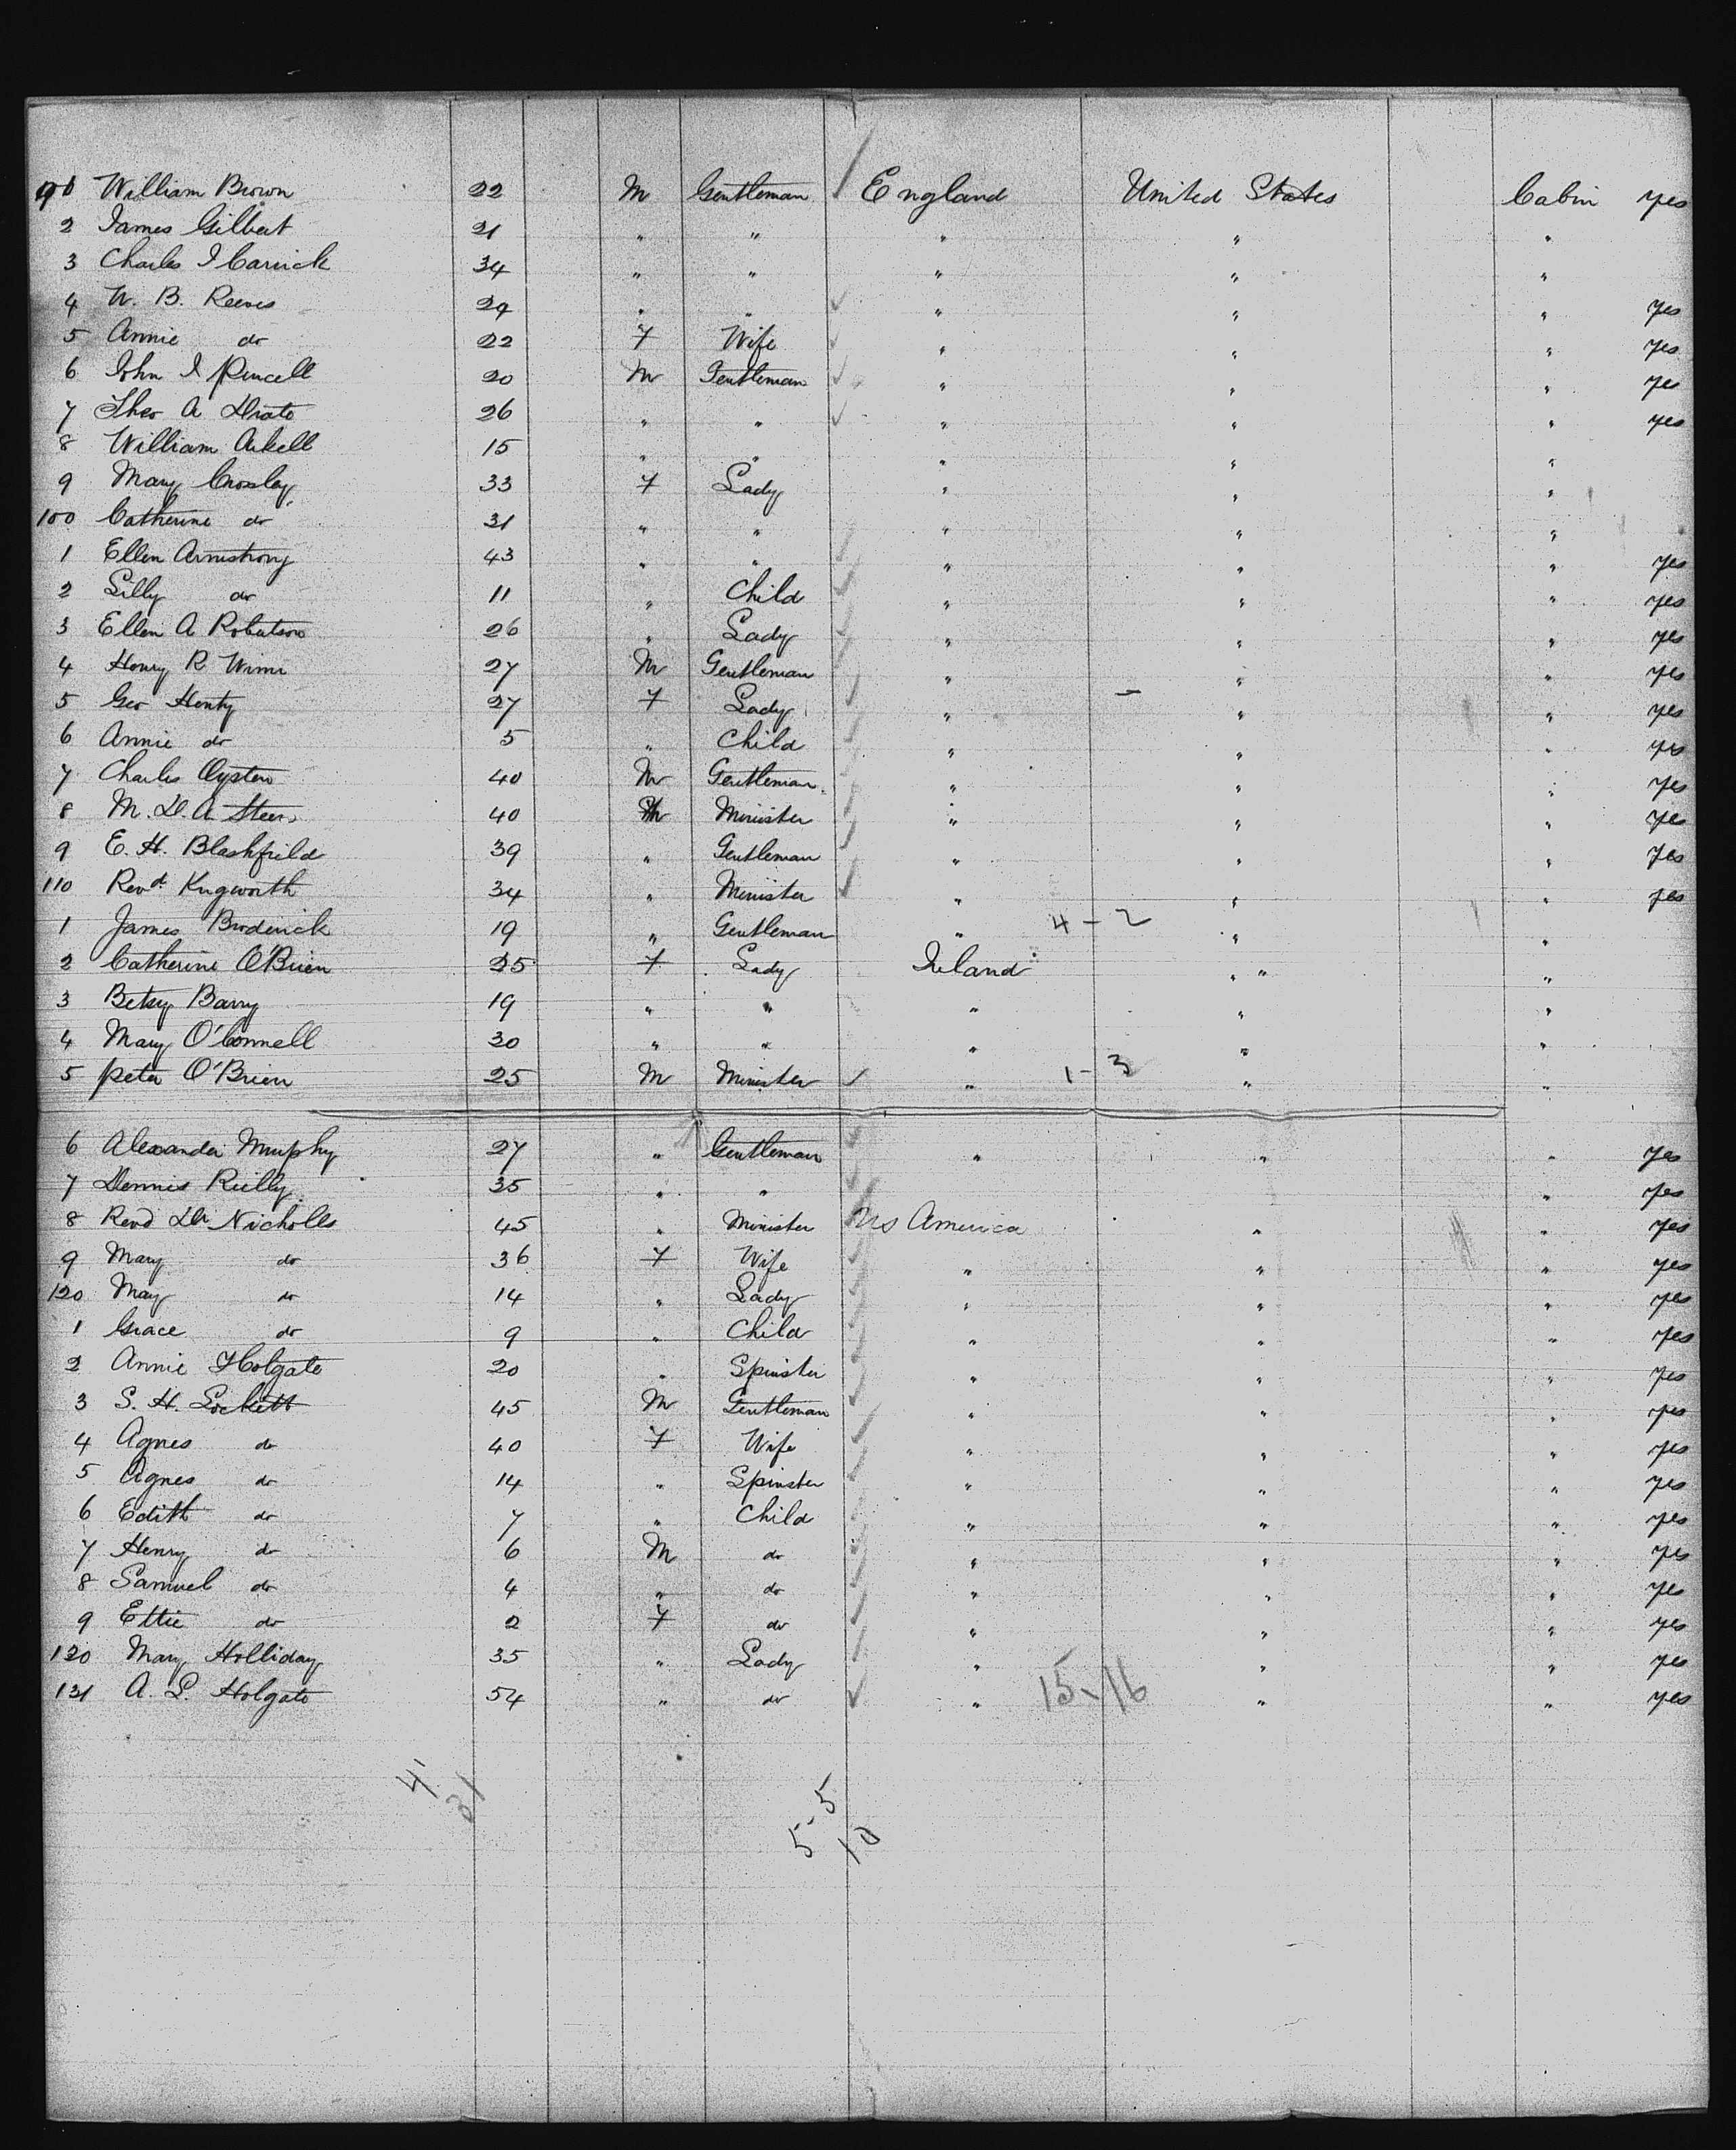 91 William Brown 22 M Gentleman England United States Cabin yes
2 James Gilbert 21 " " " " "
3 Charles I Carrick 34 " " " " "
4 W. B. Reeves 29 " " " " " yes
5 Annie do 22 F Wife " " " yes
6 John I Purcell 20 M Gentleman " " " yes
7 Theo A 26 " " " " " yes
8 William Arkell 15 " " " " "
9 Mary Crosley 33 F Lady " " "
100 Catherine do 31 " " " " "
1 Ellen Armstrong 43 " " " " " yes
2 Lilly do 11 " Child " " " yes
3 Ellen A Robertson 26 " Lady " " " yes
4 Henry R 27 M Gentleman " " " yes
5 Geo Henty 27 F Lady " " " yes
6 Annie do 5 " Child " " " yes
7 Charles 40 M Gentleman " " " yes
8 M. D. A. Steen 40 M Minister " " " yes
9 E. H. Blashfield 39 " Gentleman " " " yes
110 Revd. 34 " Minister " " " yes
1 James Broderick 19 " Gentleman " 4 - 2 " "
2 Catherine O'Brien 25 F Lady Ireland " " "
3 Betsy Barry 19 " " " " "
4 Mary O'Connell 30 " " " " "
5 Peter O'Brien 25 M Minister " 1 - 3 " "
6 Alexander Murphy 27 " Gentleman " " " yes
7 Dennis Reilly 35 " " " yes
8 Revd Dr Nicholls 45 " Minister US America " " yes
9 Mary do 36 F Wife " " " yes
120 May do 14 " Lady " " " yes
1 Grace do 9 " Child " " " yes
2 Annie Holgate 20 " Spinster " " " yes
3 S. H. Lockett 45 M Gentleman " " " yes
4 Agnes do 40 F Wife " " " yes
5 Agnes do 14 " Spinster " " " yes
6 Edith do 7 " Child " " " yes
7 Henry do 6 M do " " " yes
8 Samuel do 4 " do " " " yes
9 Ettie do 2 F do " " " yes
130 Mary Holliday 35 " Lady " " " yes
131 A. L. Holgate 54 " do " 15-16 " " yes
4
31
5-5
10